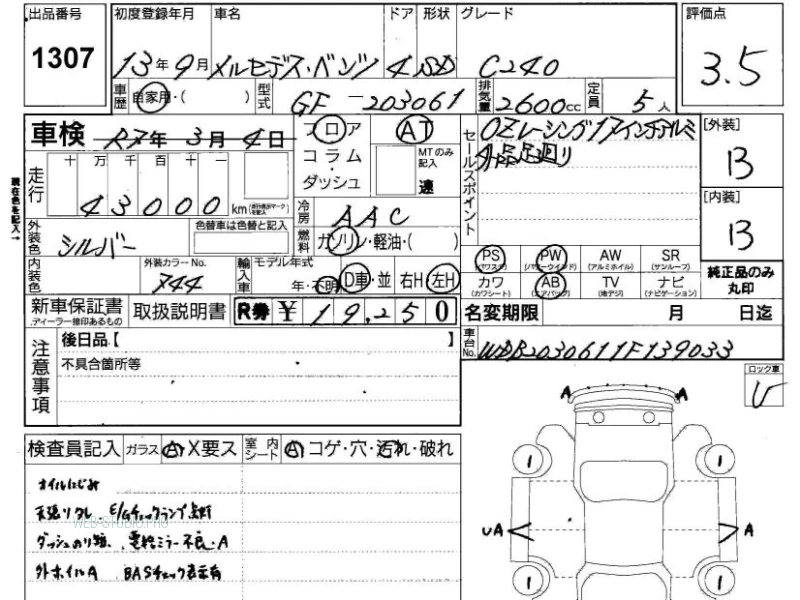 出品番号 初度登録年月 車名 ドア 形状 グレード 評価点
1307 13年9月 メルセデス・ベンツ 4 SD C240 3.5
車歴 自家用・( ) 型式 GF-203061 排気量 2600cc 定員 5人
車検 R7年3月4日 フロア AT セールスポイント OZレーシング17インチアルミ [外装]
コラム MTのみ記入 速 B
ダッシュ
走行 十 万 千 百 十 一
43000 km
冷房 AAC [内装]
現在色を記入→
外装色 シルバー 色替車は色替と記入 燃料 ガソリン・軽油・( ) B
内装色 外装カラーNo. 744 輸入車 モデル年式 年・不明 D車・並 右H 左H
PS (パワステ) PW (パワーウインド) AW (アルミホイル) SR (サンルーフ)
カワ (カワシート) AB (エアバック) TV (地デジ) ナビ (ナビゲーション)
純正品のみ丸印
新車保証書 ディーラー捺印あるもの 取扱説明書 R券 ¥ 19,250 名変期限 月 日迄
注意事項 後日品【 】 車台No. WDB2030611F139033
不具合箇所等 ロック車
A A
検査員記入 ガラス A X要ス 室内シート A コゲ・穴・汚れ・破れ
オイルにじみ 1 1
天張リクレ. E/Gチェックランプ点灯
WEB-STUDIO.PRO
UA A
外ホイルA BASチェック表示有
1 1